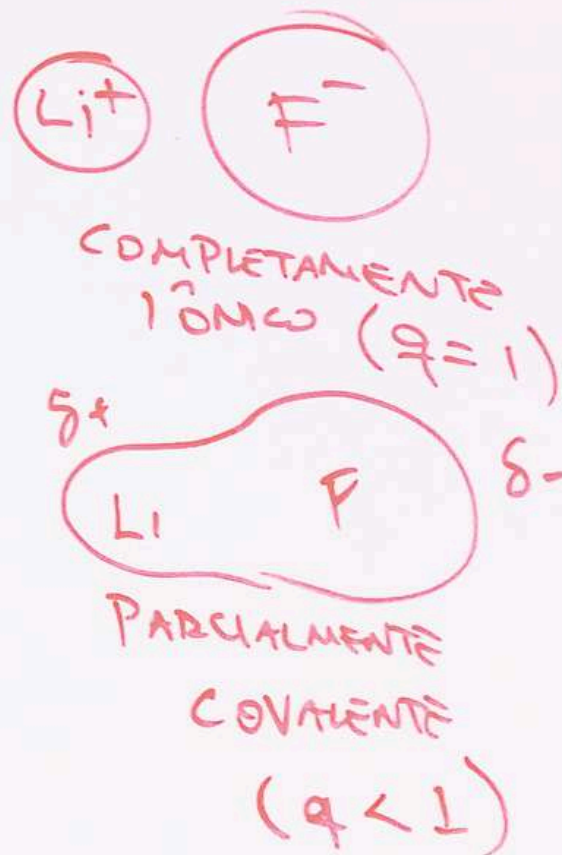 Li⁺ F⁻
COMPLETAMENTE
IÔNICO (q = 1)
δ+
δ-
Li F
PARCIALMENTE
COVALENTE
(q < 1)